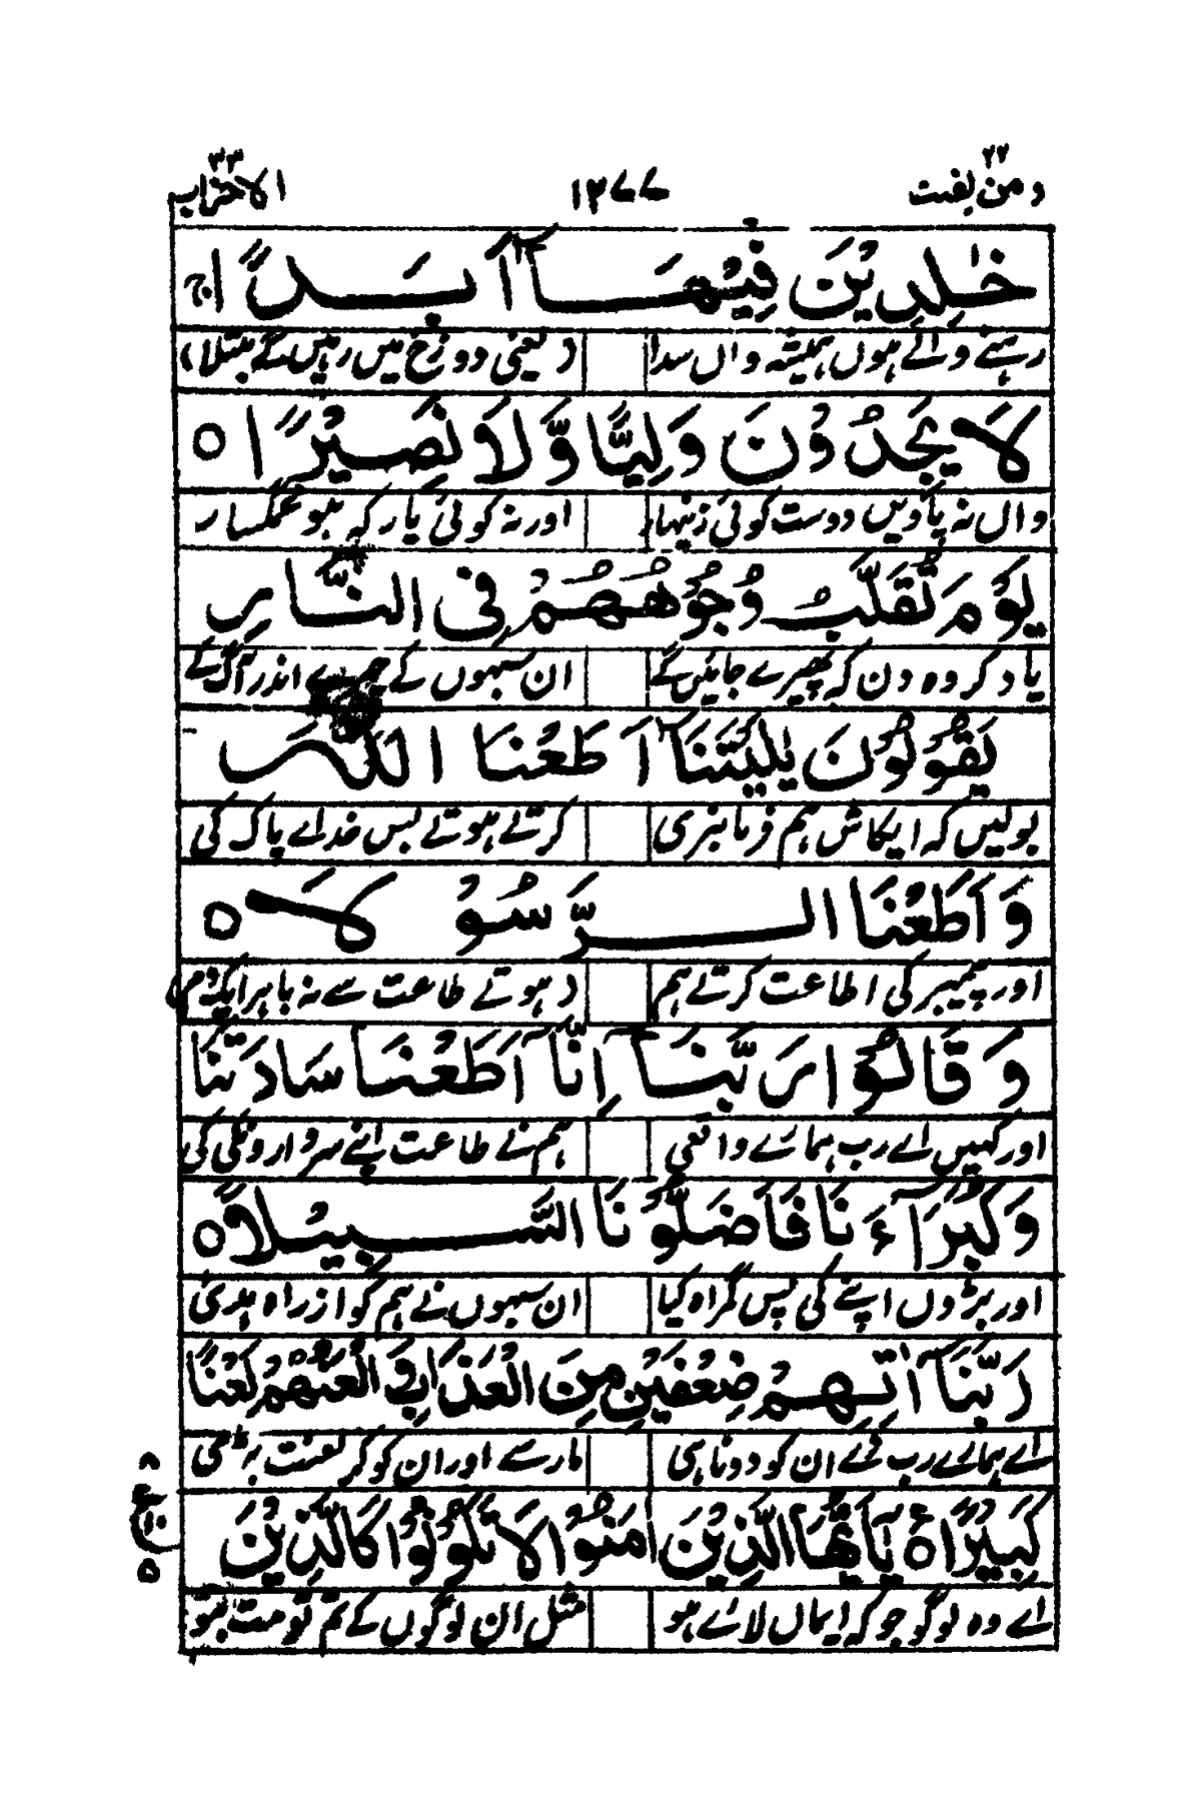 ومن یقنت ۲۲ ۱۲۷۷ الاحزاب ۳۳
خٰلِدِیْنَ فِیْهَاۤ اَبَدًا ج
رہنے والے ہوں ہمیشہ واں سدا (یعنی دوزخ میں رہیں گے مبتلا)
لَا یَجِدُوْنَ وَلِیًّا وَّلَا نَصِیْرًا ○
واں نہ پاویں دوست کوئی زینہار اور نہ کوئی یار کہ ہو غمگسار
یَوْمَ تُقَلَّبُ وُجُوْهُهُمْ فِی النَّارِ
یاد کر وہ دن کہ پھیرے جائیں گے ان سبھوں کے چہرے اندر آگ کے
یَقُوْلُوْنَ یٰلَیْتَنَاۤ اَطَعْنَا اللّٰهَ
بولیں کہ ایکاش ہم فرمانبری کرتے ہوتے بس خدائے پاک کی
وَاَطَعْنَا الرَّسُوْلَا ○
اور پیمبر کی اطاعت کرتے ہم (ہوتے طاعت سے نہ باہر ایکدم)
وَقَالُوْا رَبَّنَاۤ اِنَّاۤ اَطَعْنَا سَادَتَنَا
اور کہیں اے رب ہمارے واقعی ہم نے طاعت اپنے سرداروں کی کی
وَكُبَرَآءَنَا فَاَضَلُّوْنَا السَّبِیْلَا ○
اور بڑوں اپنے کی پس گمراہ کیا ان سبھوں نے ہم کو از راہ ہدیٰ
رَبَّنَاۤ اٰتِهِمْ ضِعْفَیْنِ مِنَ الْعَذَابِ وَالْعَنْهُمْ لَعْنًا
اے ہمارے رب دے ان کو دونا ہی مار سے اور ان کو کر لعنت بڑی
كَبِیْرًا ○ یٰۤاَیُّهَا الَّذِیْنَ اٰمَنُوْا لَا تَكُوْنُوْا كَالَّذِیْنَ
۸ ع ۱۰ ۵
اے وہ لوگو جو کہ ایماں لائے ہو مثل ان لوگوں کے تم تو مت بنو